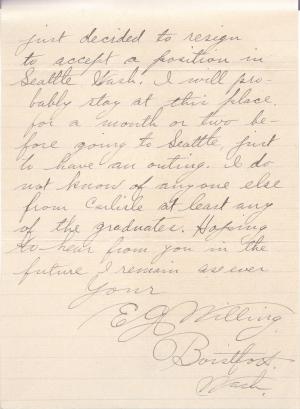 just decided to resign
to accept a position in
Seattle Wash. I will pro-
bably stay at this place
for a month or two be-
fore going to Seattle, just
to have an outing. I do
not know of anyone else
from Carlisle at least any
of the graduates. Hoping
to hear from you in the
future I remain as ever
Your
E G Willing
Boistfort.
Wash.